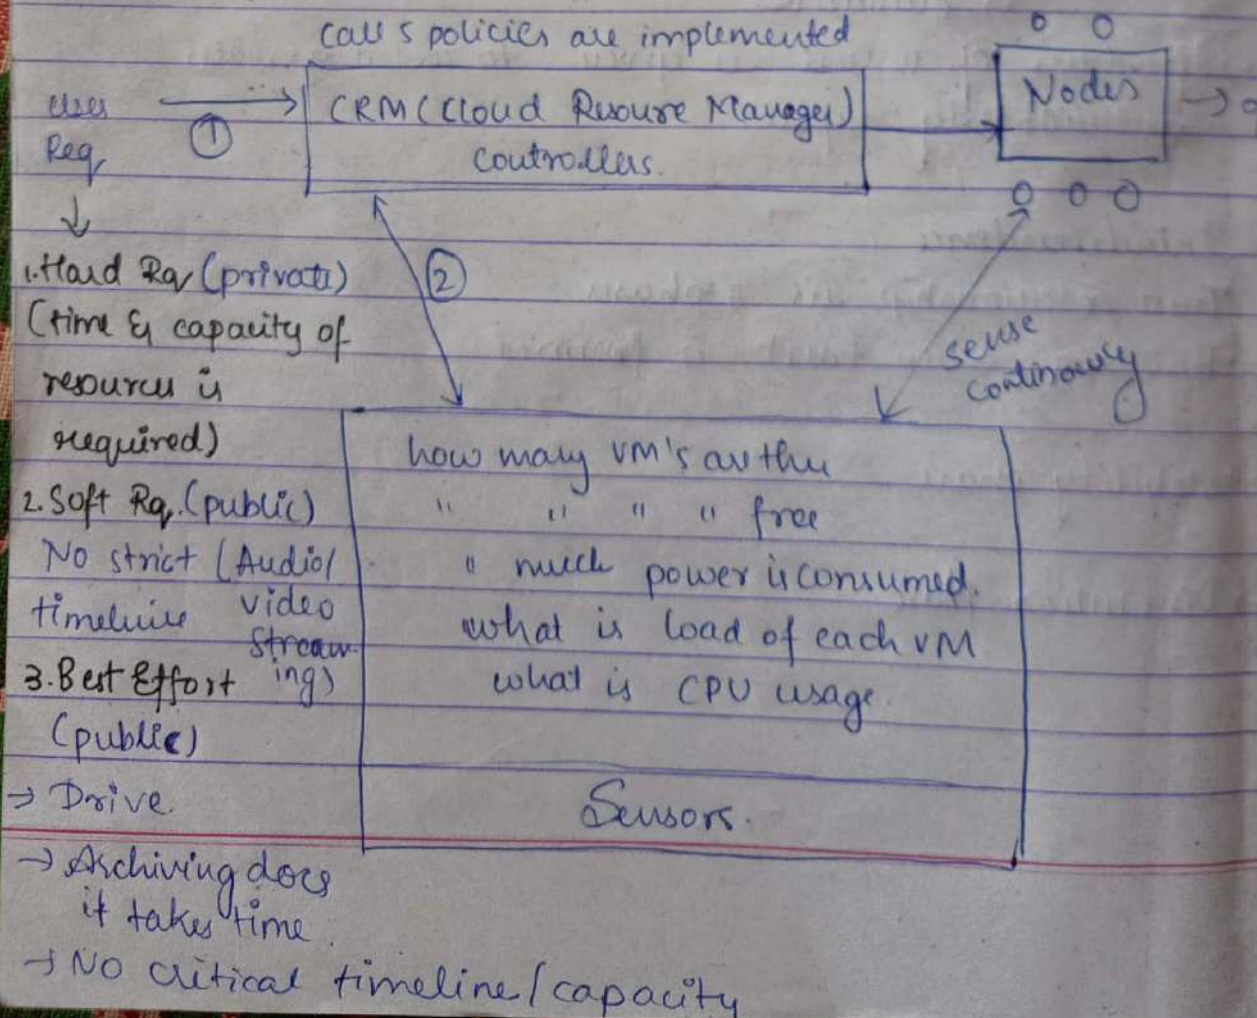 call 5 policies are implemented
User
Req
①
CRM (Cloud Resoure Manager)
Controllers.
Nodes
②
sense
continously
1. Hard Rq (private)
(time & capacity of
resources is
required)
2. Soft Rq. (public)
No strict (Audio/
timeline video
stream
ings)
3. Best Effort
(public)
→ Drive.
→ Archiving docs
it takes time.
→ No critical timeline/capacity
how many VM's are there
" " " " free
" much power is consumed.
what is load of each VM
what is CPU usage.
Sensors.